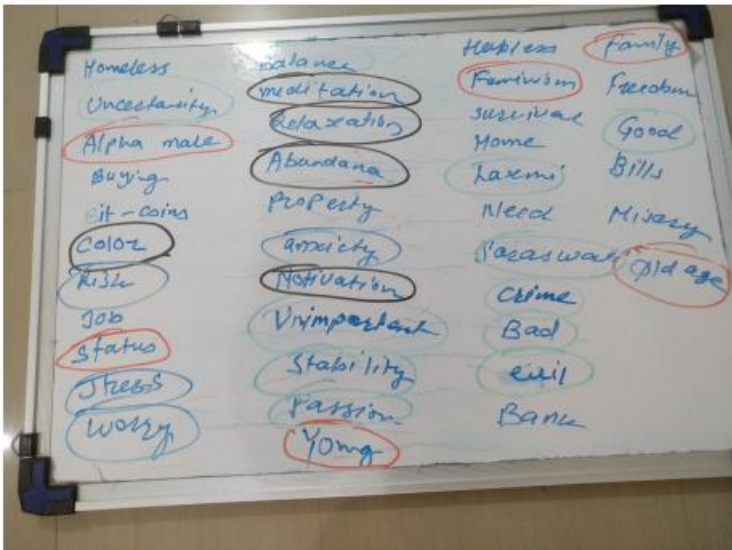 Homeless
Uncertainity
Alpha male
Buying
it-coins
Color
Risk
Job
Status
Stress
Worry
Balance
meditation
Relaxation
Abundana
Property
anxiety
Motivation
Unimportant
Stability
Passion
Young
Helpless
Feminism
survival
Home
Laxmi
Need
Saraswati
Crime
Bad
evil
Bank
Family
Freedom
Good
Bills
Misery
Old age